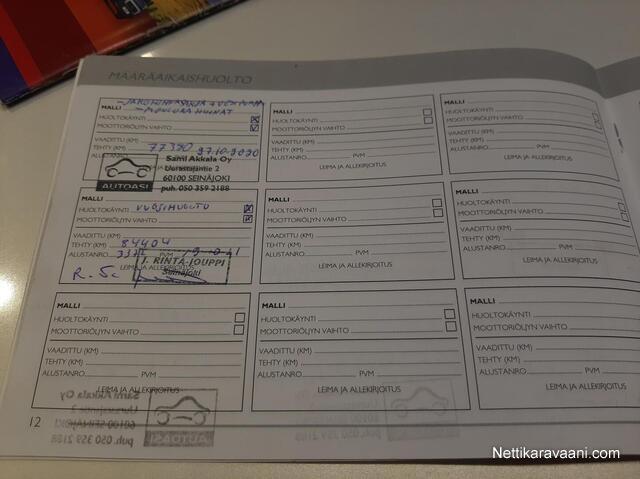 MÄÄRÄAIKAISHUOLTO
MALLI
HUOLTOKÄYNTI
MOOTTORIÖLJYN VAIHTO
VAADITTU (KM)
TEHTY (KM) 77390 27.10.2020
ALUSTANRO
Sami Akkala Oy
Uurastajantie 2
60100 SEINÄJOKI
puh. 050 359 2188
AUTOASI
MALLI
HUOLTOKÄYNTI
MOOTTORIÖLJYN VAIHTO
VAADITTU (KM)
TEHTY (KM)
ALUSTANRO. PVM
LEIMA JA ALLEKIRJOITUS
MALLI
HUOLTOKÄYNTI
MOOTTORIÖLJYN VAIHTO
VAADITTU (KM)
TEHTY (KM)
ALUSTANRO. PVM
LEIMA JA ALLEKIRJOITUS
MALLI
HUOLTOKÄYNTI VUOSIHUOLTO
MOOTTORIÖLJYN VAIHTO
VAADITTU (KM)
TEHTY (KM) 84404
ALUSTANRO. PVM
LEIMA JA ALLEKIRJOITUS
J. RINTA-JOUPPI
Seinäjoki
MALLI
HUOLTOKÄYNTI
MOOTTORIÖLJYN VAIHTO
VAADITTU (KM)
TEHTY (KM)
ALUSTANRO. PVM
LEIMA JA ALLEKIRJOITUS
MALLI
HUOLTOKÄYNTI
MOOTTORIÖLJYN VAIHTO
VAADITTU (KM)
TEHTY (KM)
ALUSTANRO. PVM
LEIMA JA ALLEKIRJOITUS
MALLI
HUOLTOKÄYNTI
MOOTTORIÖLJYN VAIHTO
VAADITTU (KM)
TEHTY (KM)
ALUSTANRO. PVM
LEIMA JA ALLEKIRJOITUS
MALLI
HUOLTOKÄYNTI
MOOTTORIÖLJYN VAIHTO
VAADITTU (KM)
TEHTY (KM)
ALUSTANRO. PVM
LEIMA JA ALLEKIRJOITUS
MALLI
HUOLTOKÄYNTI
MOOTTORIÖLJYN VAIHTO
VAADITTU (KM)
TEHTY (KM)
ALUSTANRO. PVM
LEIMA JA ALLEKIRJOITUS
Sami Akkala Oy
Uurastajantie 2
60100 SEINÄJOKI
puh. 050 359 2188
AUTOASI
12
Nettikaravaani.com